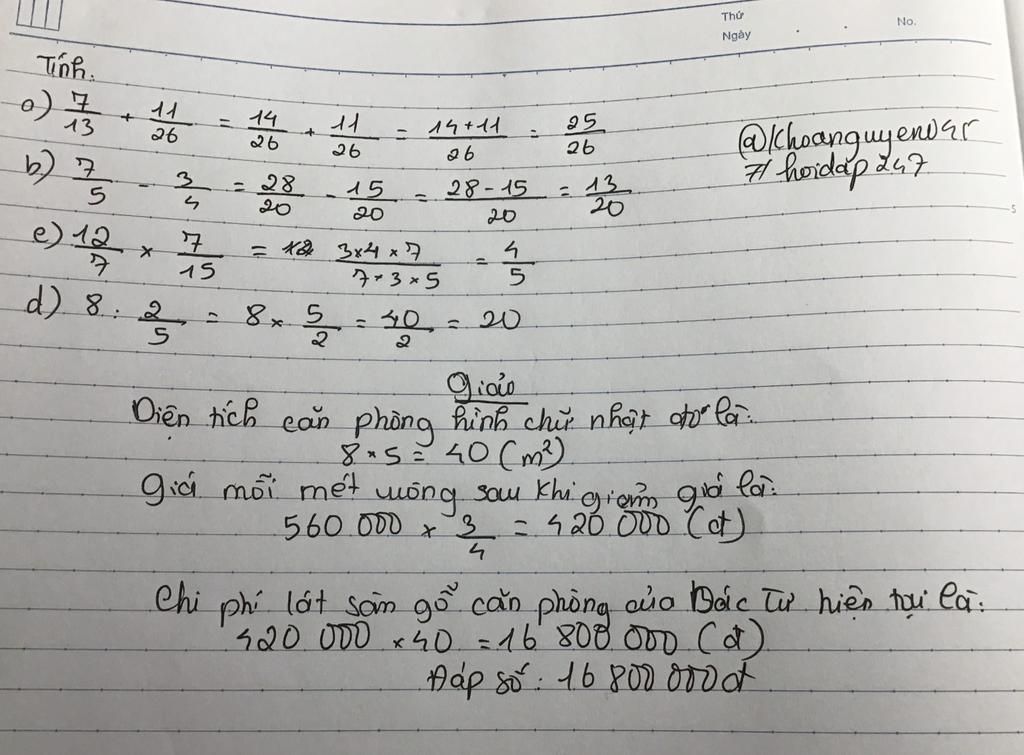 Thứ
Ngày
No.
Tính.
a) 7/13 + 11/26 = 14/26 + 11/26 = 14+11/26 = 25/26
@Khoanguyen045
# hoidap247
b) 7/5 - 3/4 = 28/20 - 15/20 = 28-15/20 = 13/20
c) 12/7 × 7/15 = 3×4×7/7×3×5 = 4/5
d) 8 : 2/5 = 8 × 5/2 = 40/2 = 20
Giải
Diện tích căn phòng hình chữ nhật đó là:
8 × 5 = 40 (m²)
Giá mỗi mét vuông sau khi giảm giá là:
560 000 × 3/4 = 420 000 (đ)
Chi phí lát sàn gỗ căn phòng của Bác Tư hiện tại là:
420 000 × 40 = 16 800 000 (đ)
Đáp số: 16 800 000đ
5